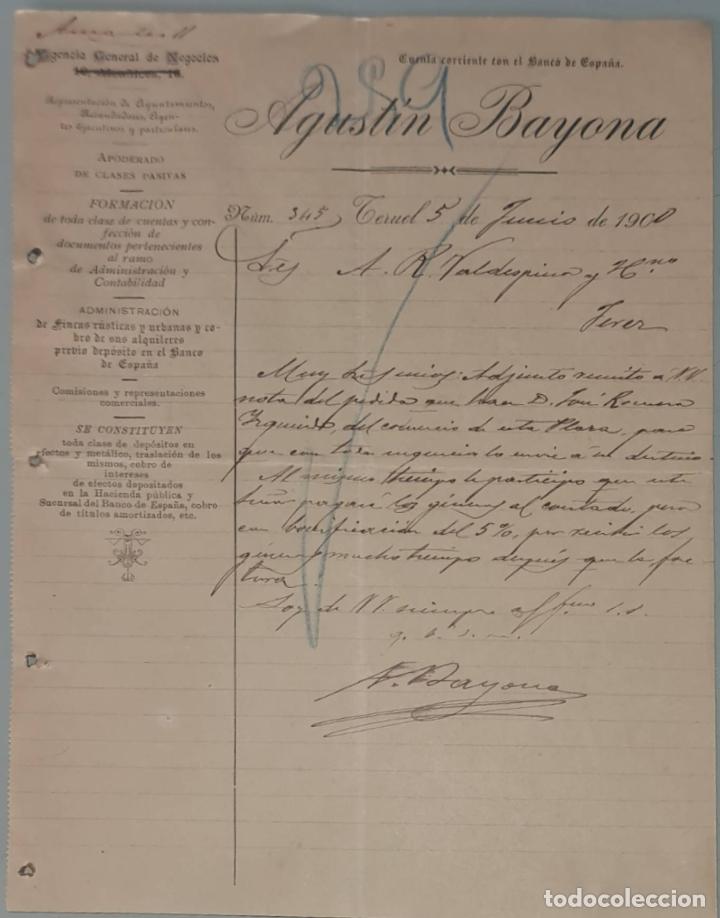 Agencia General de Negocios
10, 10.
Representación de Ayuntamientos,
Recaudadores, Agen-
tes Ejecutivos y particulares.
APODERADO
DE CLASES PASIVAS
FORMACIÓN
de toda clase de cuentas y con-
fección de
documentos pertenecientes
al ramo
de Administración y
Contabilidad
ADMINISTRACIÓN
de Fincas rústicas y urbanas y co-
bro de sus alquileres
previo depósito en el Banco
de España
Comisiones y representaciones
comerciales.
SE CONSTITUYEN
toda clase de depósitos en
efectos y metálico, traslación de los
mismos, cobro de
intereses
de efectos depositados
en la Hacienda pública y
Sucursal del Banco de España, cobro
de títulos amortizados, etc.
Cuenta corriente con el Banco de España.
Agustín Bayona
Núm. 345 Teruel 5 de Junio de 1900
Sres A. R. Valdespino y Hno
Jerez
Muy Sres mios: Adjunto remito a VV
nota del pedido que hace D. José Romero
Izquierdo, del comercio de esta Plaza, para
que con toda urgencia lo envie á su destino.
Al mismo tiempo le participo que este
Señor pagará los géneros al contado, pero
con bonificacion del 5%, por recibir los
géneros mucho tiempo después que la fac-
tura.
Soy de VV. siempre affmo s.s.
q. b. s. m.
A. Bayona
todocoleccion.net